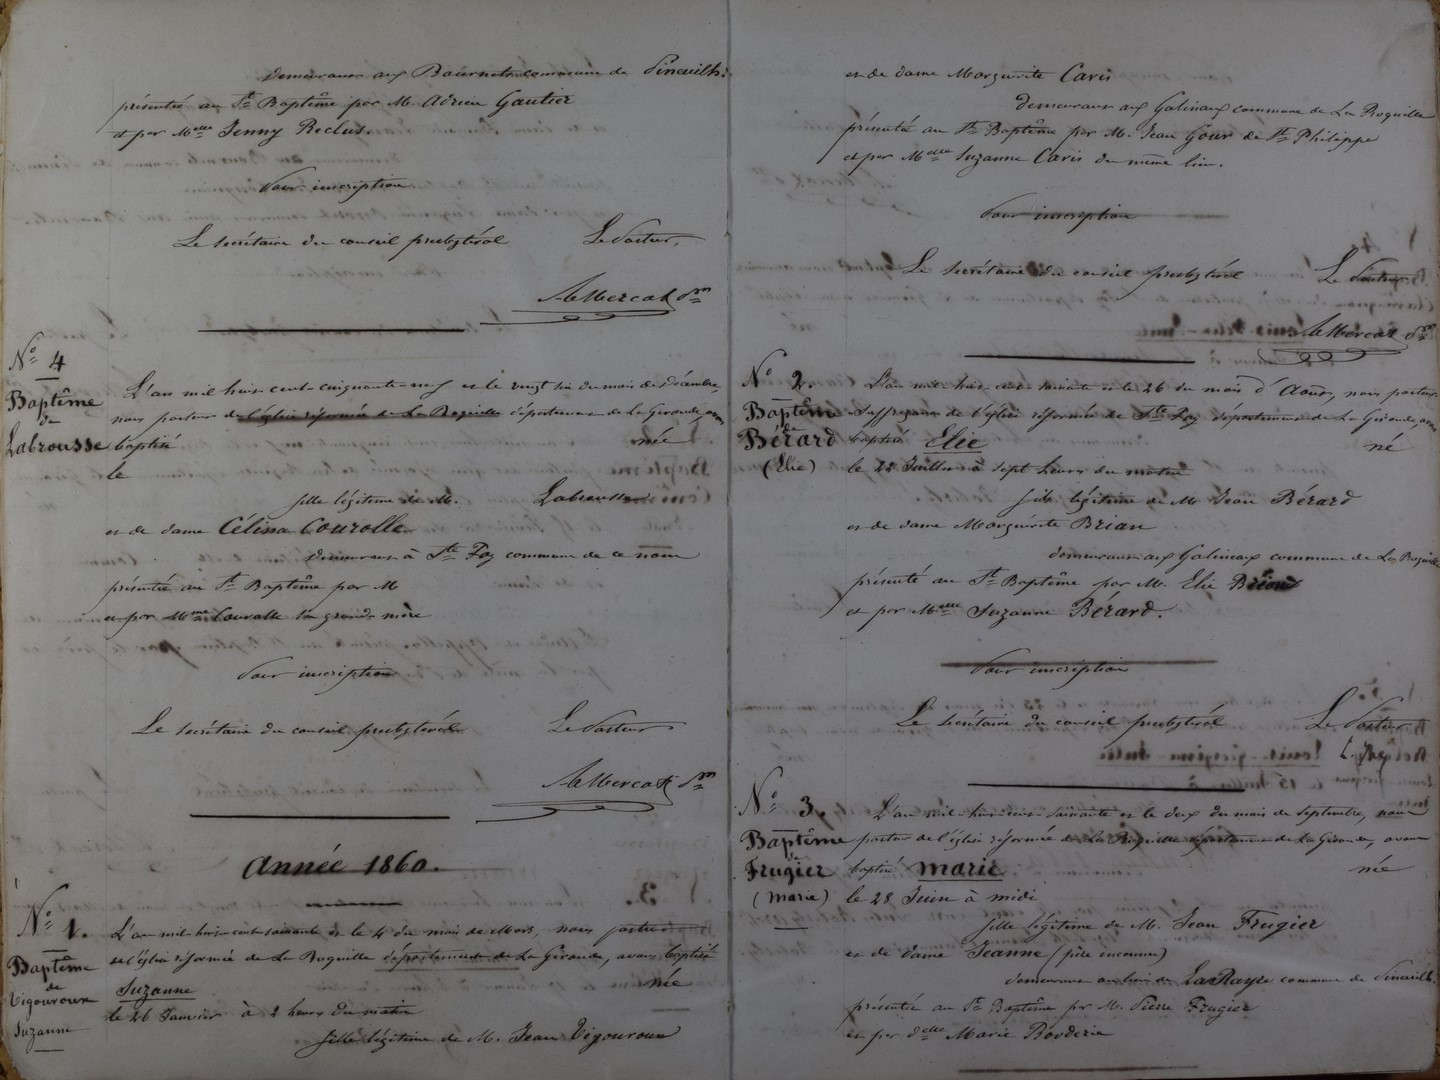 demeurant aux Bournets commune de Pineuilh.
présentée au St Baptême par M. Adrien Gautier
et par Melle Jenny Reclus.
Pour inscription
Le secrétaire du conseil presbytéral Le Pasteur,
A. Mercat Pr
No 4
Baptême
de
Labrousse
L'an mil huit cent cinquante-neuf et le vingt six du mois de décembre,
nous pasteur de l'église réformée de La Roquille département de La Gironde, avons
baptisé née
le
fille légitime de M. Labrousse
et de dame Célina Courolle
demeurant à Ste Foy commune de ce nom
présentée au St Baptême par M
et par Mme Couralle la grand-mère
Pour inscription
Le secrétaire du conseil presbytéral Le Pasteur
A. Mercat Pr
Année 1860.
No 1.
Baptême
de
Vigouroux
Suzanne
L'an mil-huit-cent-soixante et le 4 du mois de Mars, nous pasteur
de l'église réformée de La Roquille département de La Gironde, avons baptisé
Suzanne née
le 26 Janvier à 2 heures du matin
fille légitime de M. Jean Vigouroux
et de dame Marguerite Caris
demeurant aux Galineaux commune de La Roquille
présentée au St Baptême par M. Jean Gour de St Philippe
et par Melle Suzanne Caris du même lieu.
Pour inscription
Le secrétaire du conseil presbytéral Le Pasteur
A. Mercat Pr
No 2.
Baptême
de
Bérard
(Elie)
L'an mil-huit-cent-soixante et le 26 du mois d'Août, nous pasteur
suffragant de l'église réformée de Ste Foy département de La Gironde, avons
baptisé Elie né
le 22 Juillet à sept heures du matin
fils légitime de M Jean Bérard
et de dame Marguerite Brian
demeurant aux Galineaux commune de La Roquille
présenté au St Baptême par M. Elie
et par Melle Suzanne Bérard.
Pour inscription
Le secrétaire du conseil presbytéral Le Pasteur
No 3.
Baptême
de
Frugier
(marie)
L'an mil-huit-cent-soixante et le deux du mois de septembre, nous
pasteur de l'église réformée de La Roquille département de La Gironde, avons
baptisé marie née
le 28 Juin à midi
fille légitime de M. Jean Frugier
et de dame Jeanne (père inconnu)
demeurant au lieu de La Raye commune de Pineuilh.
présentée au St Baptême par M. Pierre Frugier
et par delle Marie Bouderie